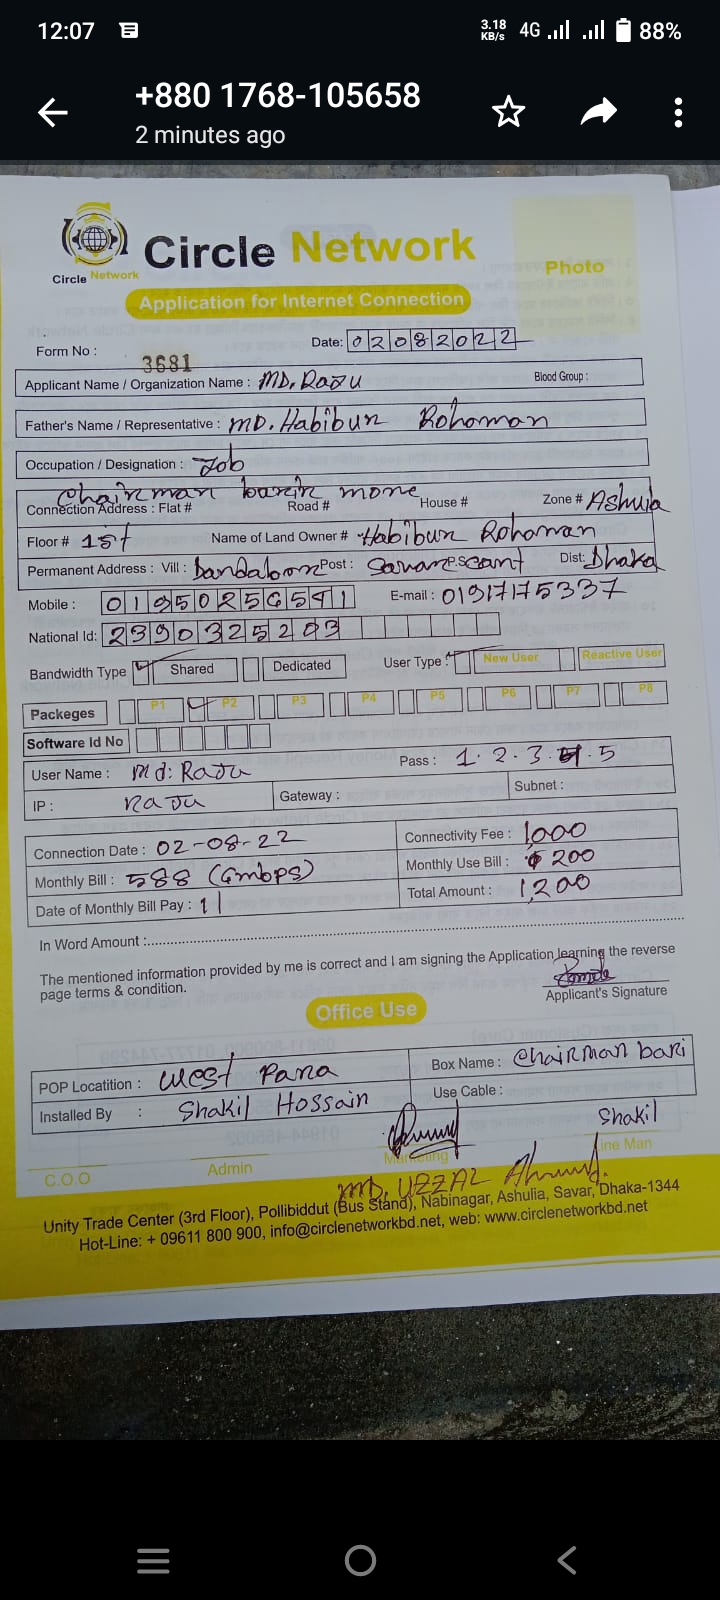 12:07 3.18 KB/s 4G 88%
+880 1768-105658
2 minutes ago
Circle Network
Circle Network
Photo
Application for Internet Connection
Form No : 3681 Date: 02082022
Applicant Name / Organization Name : MD. Raju Blood Group :
Father's Name / Representative : MD. Habibur Rohoman
Occupation / Designation : Job
Chairman barir mone
Connection Address : Flat # Road # House # Zone # Ashulia
Floor # 1st Name of Land Owner # Habibur Rohoman
Permanent Address : Vill : Post : Savar P.S: cant Dist: Dhaka
Mobile : 01950256541 E-mail : 01917175337
National Id: 2390325203
Bandwidth Type Shared Dedicated User Type : New User Reactive User
Packeges P1 P2 P3 P4 P5 P6 P7 P8
Software Id No
User Name : Md: Raju Pass : 1.2.3.4.5
IP : Raju Gateway : Subnet :
Connection Date : 02-08-22 Connectivity Fee : 1,000
Monthly Bill : 588 Monthly Use Bill : 200
Date of Monthly Bill Pay : 1 Total Amount : 1,200
In Word Amount :
The mentioned information provided by me is correct and I am signing the Application learning the reverse
page terms & condition.
Applicant's Signature
Office Use
POP Locatition : West Para Box Name : Chairman bari
Installed By : Shakil Hossain Use Cable :
Shakil
C.O.O Admin Marketing Line Man
MD. UZZAL Ahmed.
Unity Trade Center (3rd Floor), Pollibiddut (Bus Stand), Nabinagar, Ashulia, Savar, Dhaka-1344
Hot-Line: + 09611 800 900, info@circlenetworkbd.net, web: www.circlenetworkbd.net